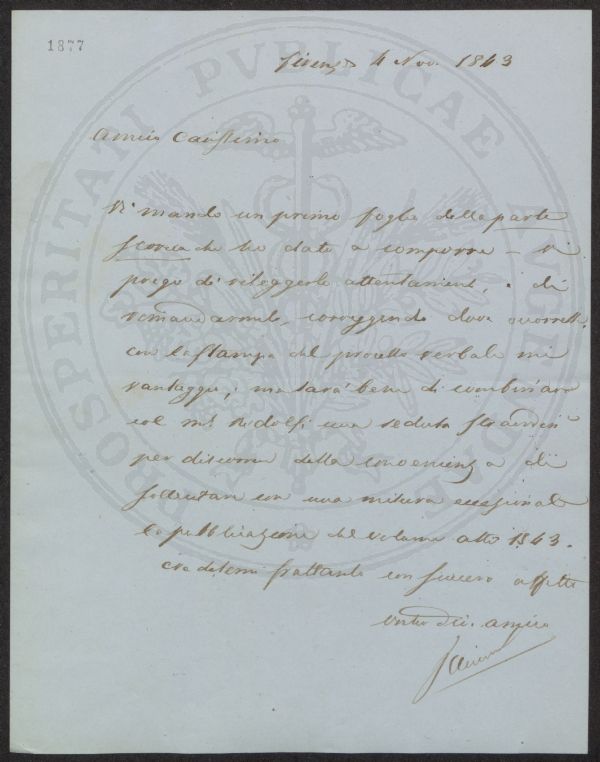 1877
PROSPERITATI PVBLICAE AVGENDAE
Firenze 4 Nov. 1843
Amico Carissimo
Vi mando un primo foglio della parte
storica che ho dato a comporre – vi
prego di rileggerlo attentamente, e di
rimandarmelo, correggendo dove occorrette.
con la stampa del processo verbale mi
vantaggio; ma sarà bene di combinare
col Mse Ridolfi una seduta straordin
per discorrere della convenienza di
sollecitare con una misura eccezionale
la pubblicazione del volume atto 1843.
Credetemi frattanto con sincero affetto
Vostro amico